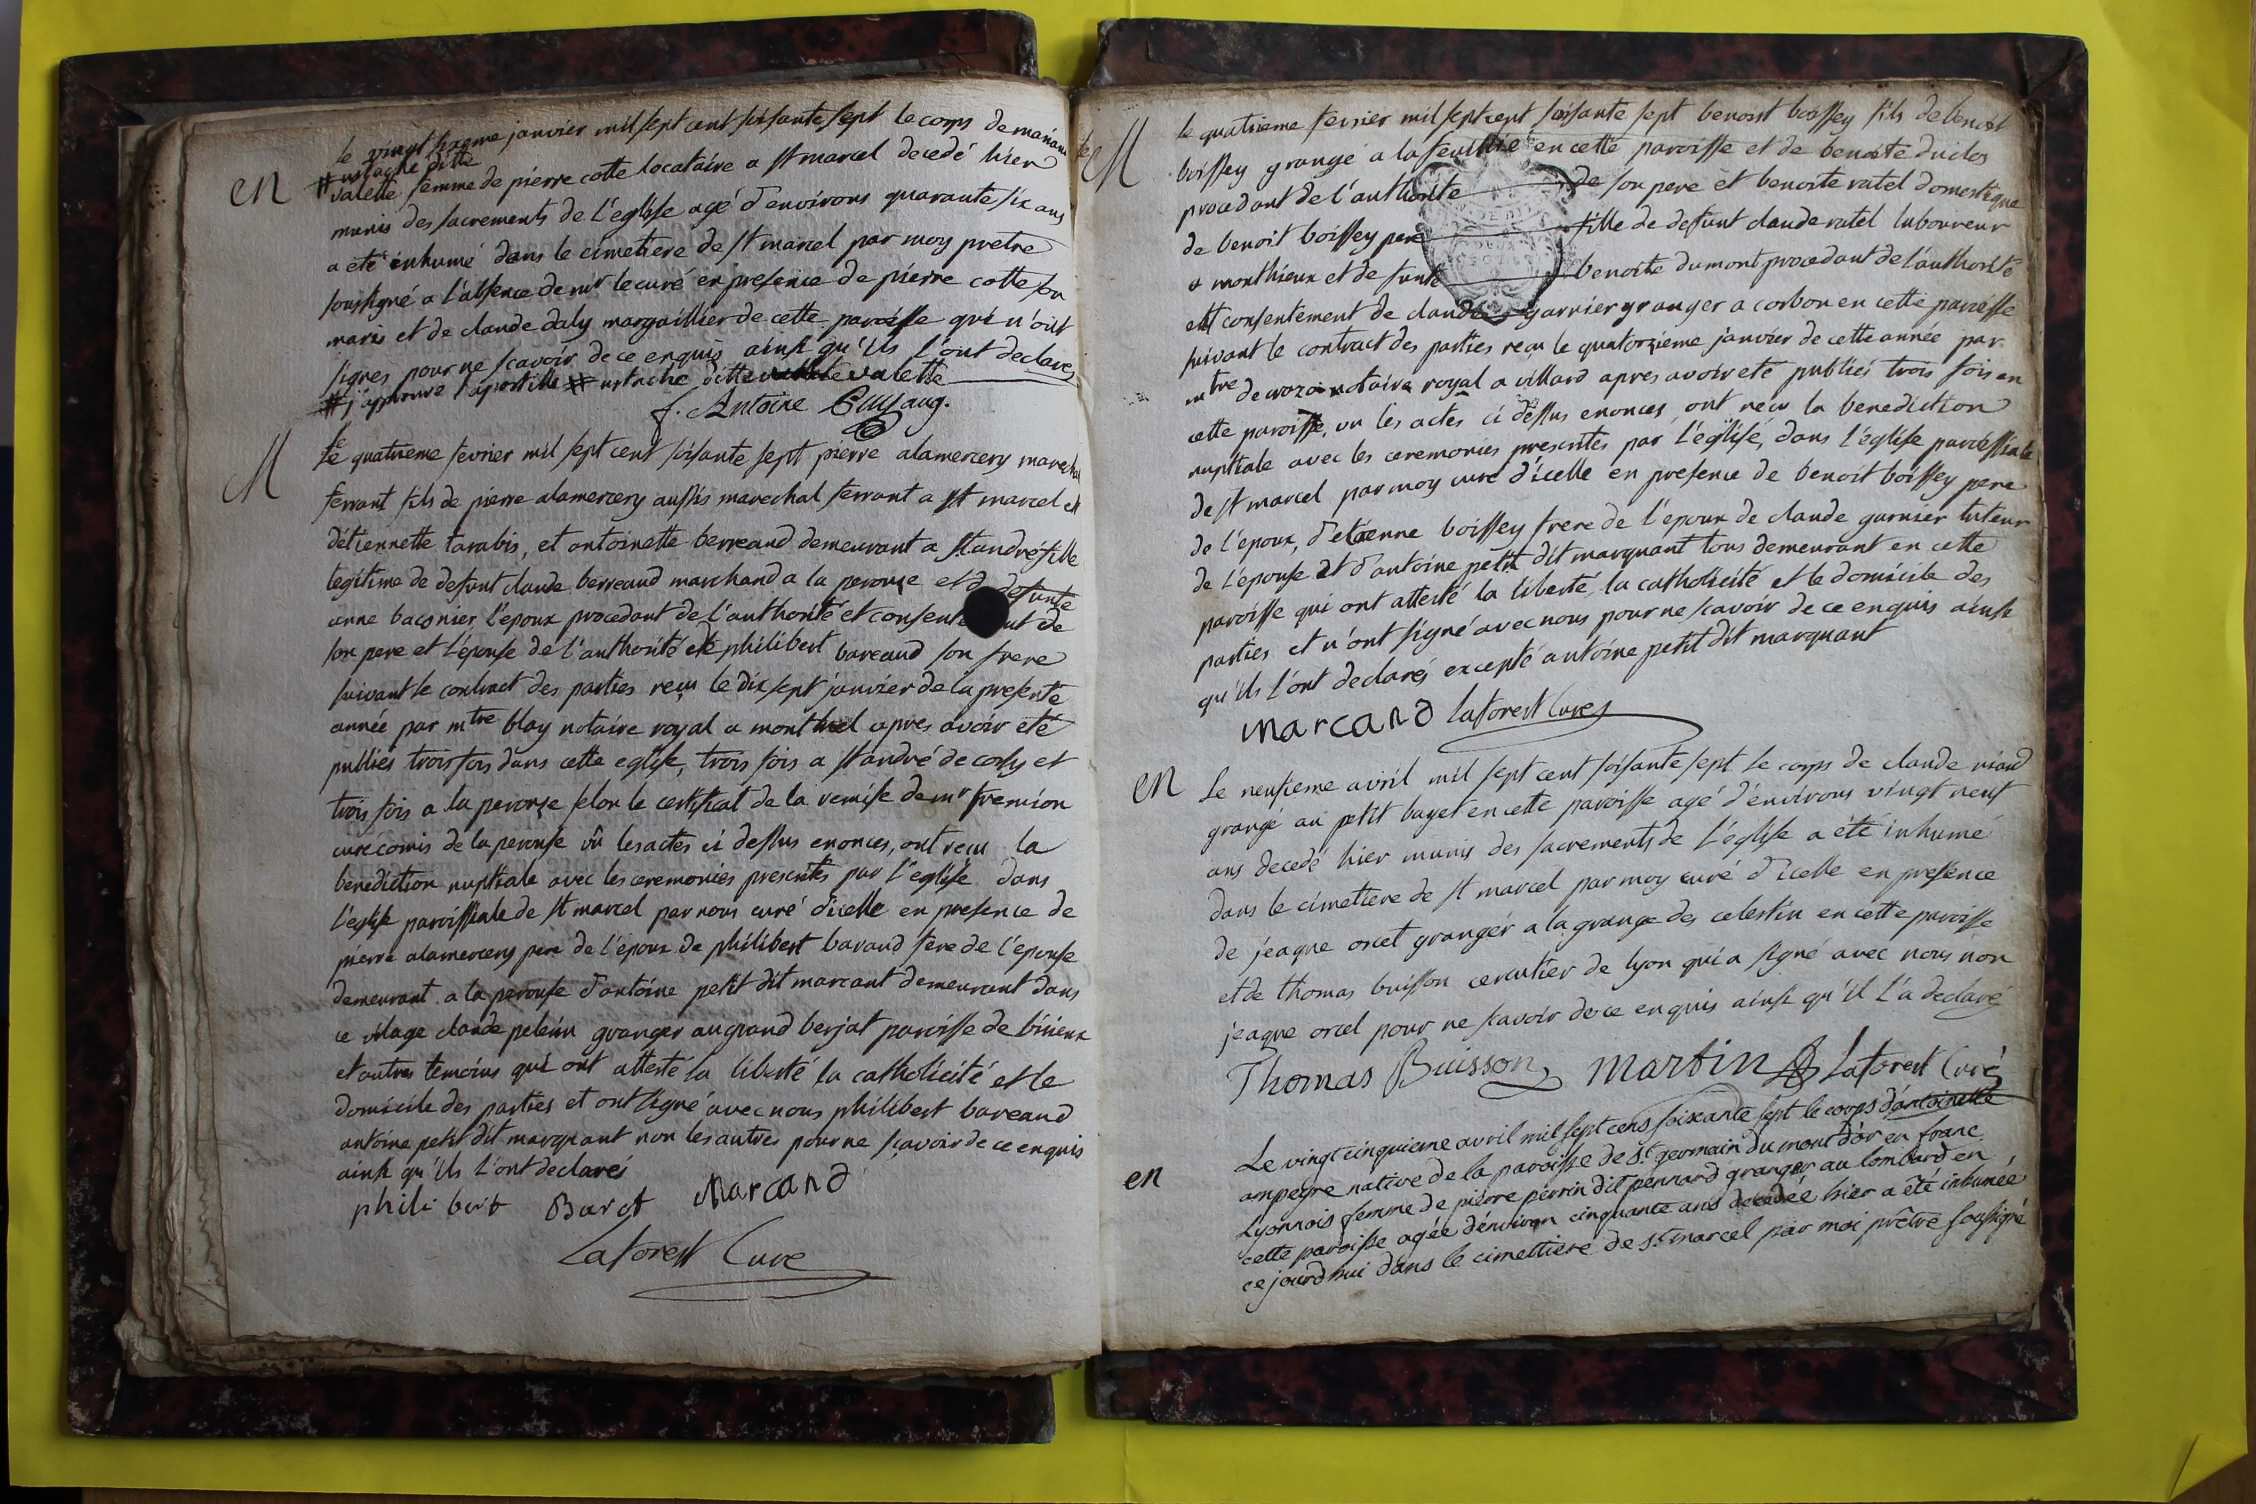 le vingt sixeme janvier mil sept cent soisante sept le corps de mariane
# ustache ditte
en
valette femme de pierre cotte locataire a st marcel decedé hier
munis des sacrements de l'eglise agé d'environs quarante six ans
a eté inhumé dans le cimetiere de st marcel par moy pretre
soussigné a l'absence de mr le curé en presence de pierre cotte son
maris et de claude daly margaillier de cette paroisse qui n'ont
signes pour ne scavoir de ce enquis ainsi qu'ils l'ont declares
# j'approuve l'apostille # ustache ditte valette
f. Antoine Guy aug.
M
Le quatrieme fevrier mil sept cent soisante sept pierre alamercery marechal
ferrant fils de pierre alamercery aussis marechal ferrant a st marcel et
d'etiennette tarabis, et antoinette berreaud demeurant a st andré fille
legitime de defunt claude berreaud marchand a la perouse et de defunte
anne baconier, l'epoux procedant de l'authorité et consentement de
son pere et l'epouse de l'authorité de philibert bareaud son frere
suivant le contract des parties reçu le dix sept janvier de la presente
année par mtre blay notaire royal a montluel apres avoir eté
publiés trois fois dans cette eglise, trois fois a st andré de corsy et
trois fois a la perouse selon le certificat de la remise de mr fremion
curé comis de la perouse vû les actes ci dessus enonces, ont reçu la
benediction nuptiale avec les ceremonies prescrites par l'eglise dans
l'eglise paroissiale de st marcel par nous curé d'icelle en presence de
pierre alamercery pere de l'epoux de philibert baraud frere de l'epouse
demeurant a la perouse d'antoine petit dit marcant demeurant dans
ce vilage claude pelerin granger au grand berjat paroisse de birieux
et autres temoins qui ont attesté la liberté la catholicité et le
domicile des parties et ont signé avec nous philibert bareaud
antoine petit dit marquant non les autres pour ne scavoir de ce enquis
ainsi qu'ils l'ont declarés
philibert Barot Marcand
Laforest Curé
M
le quatrieme fevrier mil sept cent soisante sept benoist boissey fils de benoit
boissey grangé a la feuillée en cette paroisse et de benoite duclos
procedant de l'authorité de son pere et benoite ratel domestique
de benoit boissey pere fille de defunt claude ratel laboureur
a monthieux et de funte benoite dumont procedant de l'authorité
et consentement de claude garnier granger a corbon en cette paroisse
suivant le contract des parties reçu le quatorzieme janvier de cette année par
mtre decrozo notaire royal a villard apres avoir eté publiés trois fois en
cette paroisse, vu les actes ci dessus enonces ont reçu la benediction
nuptiale avec les ceremonies prescrites par l'eglise, dans l'eglise paroissiale
de st marcel par moy curé d'icelle en presence de benoit boissey pere
de l'epoux, d'etienne boissey frere de l'epoux de claude garnier tuteur
de l'epouse et d'antoine petit dit marquant tous demeurant en cette
paroisse qui ont attesté la liberté, la catholicité et le domicile des
parties et n'ont signé avec nous pour ne scavoir de ce enquis ainsi
qu'ils l'ont declarés excepté antoine petit dit marquant
marcand Laforest Curé
en
Le neufieme avril mil sept cent soisante sept le corps de claude
grangé au petit bayet en cette paroisse agé d'environs vingt neuf
ans decedé hier munis des sacrements de l'eglise a été inhumé
dans le cimettiere de st marcel par moy curé d'icelle en presence
de jeaque orcet grangér a la grange des celestin en cette paroisse
et de thomas buisson de lyon qui a signé avec nous non
jeaque orcel pour ne scavoir de ce enquis ainsi qu'il l'a declaré
Thomas Buisson Martin Laforest Curé
en
Le vingt cinquieme avril mil sept cens soixante sept le corps d'antoinette
ampeyre native de la paroisse de St germain du mont d'or en franc
Lyonnois femme de pierre perrin dit pennard granger au lombard en
cette paroisse agée d'environ cinquante ans decedée hier a été inhumée
ce jourdhui dans le cimettiere de St marcel par moi prêtre soussigné